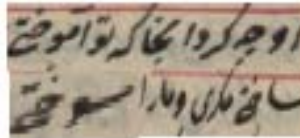 او چه کرد انجا که تو آموختی
ساختی مکری و مارا سوختی